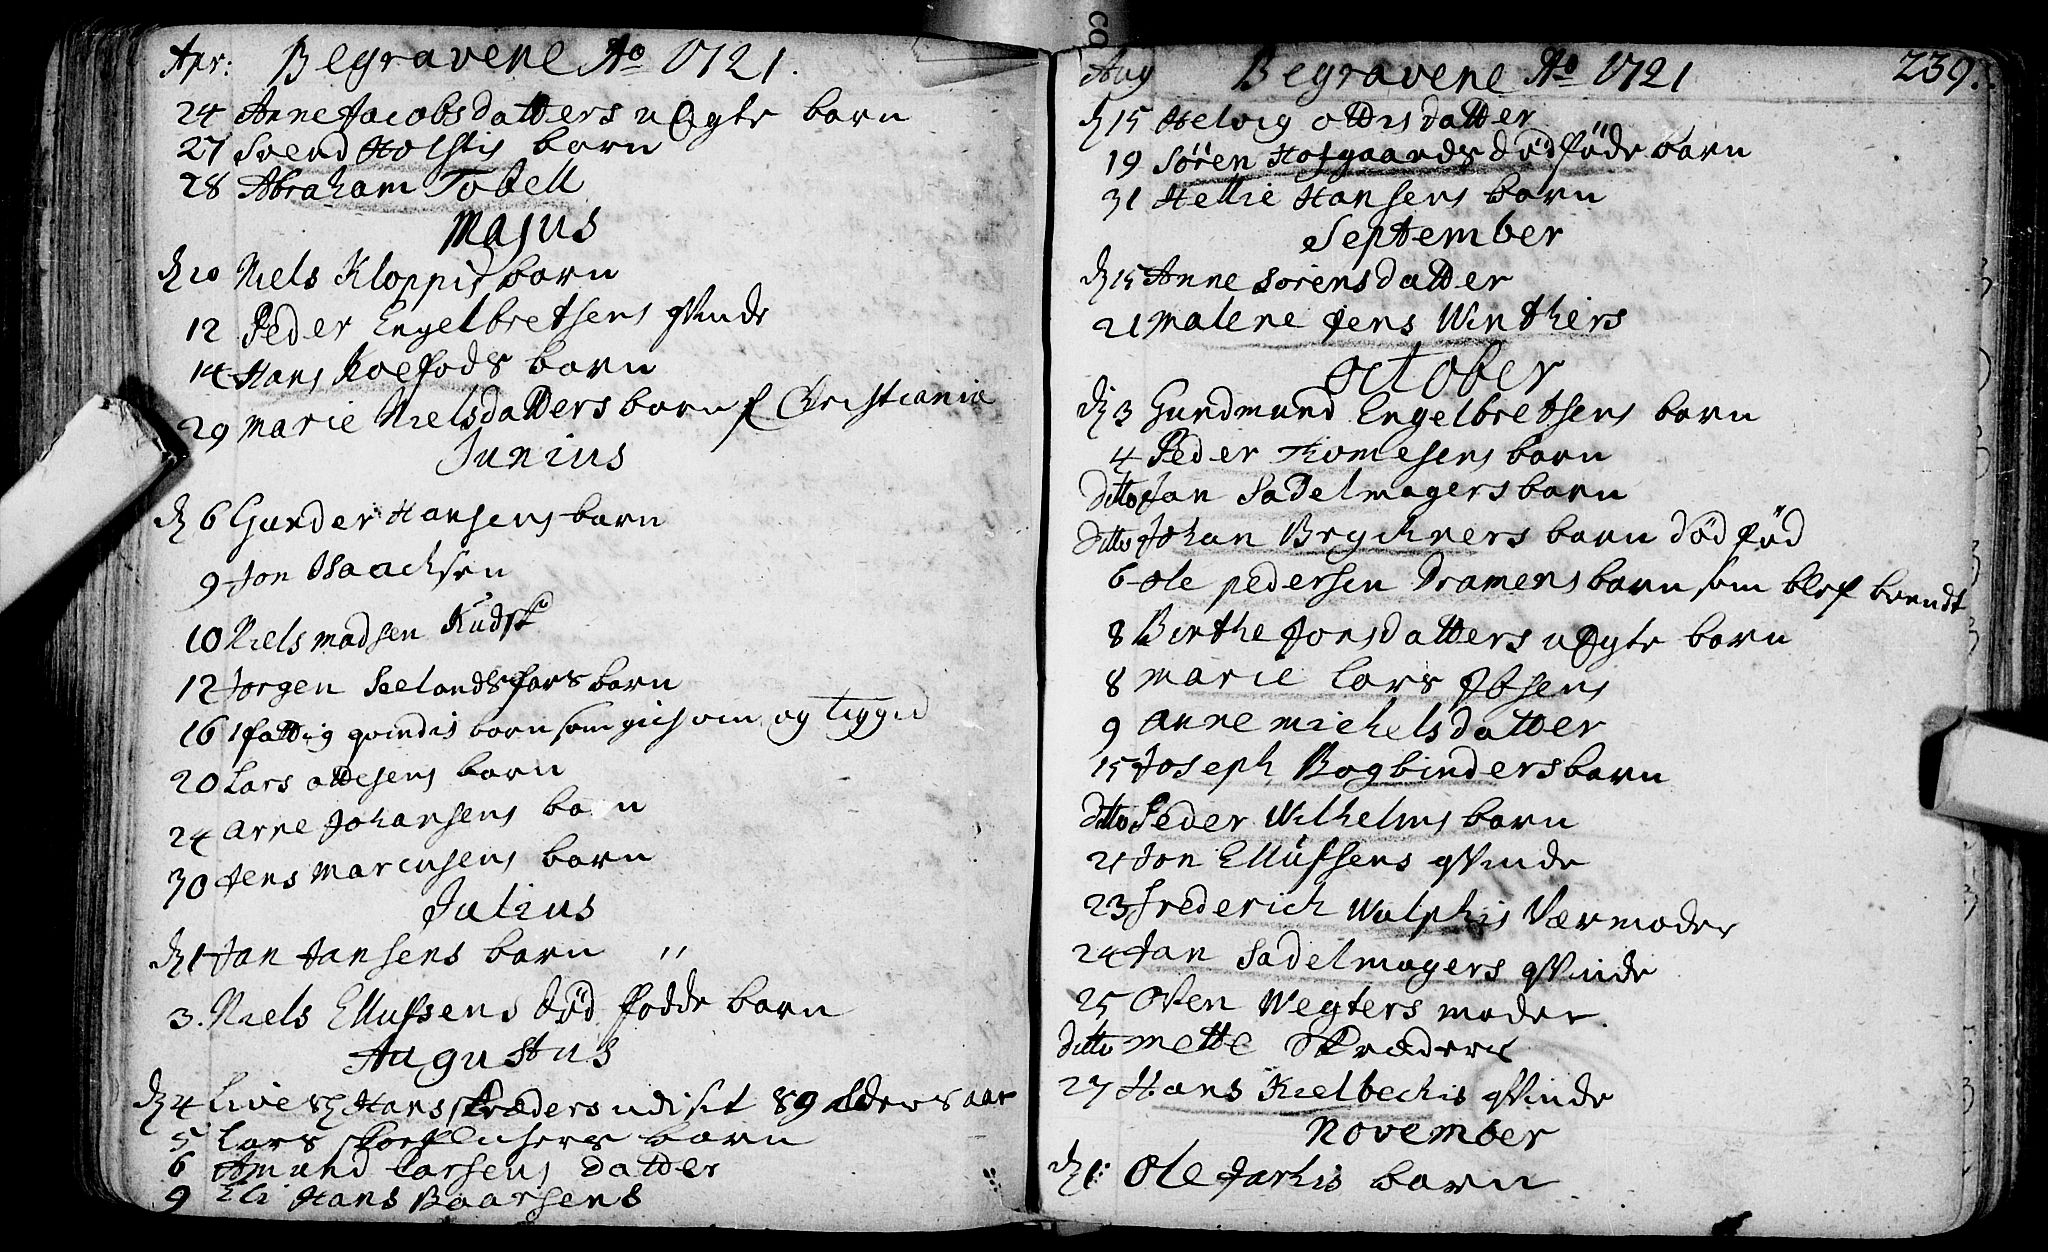 Apr: Begravene Ao 1721.
24 Anne Jacobsdatters uÆgte barn
27 Svend Holstis barn
28 Abraham Tobell
Majus
d 10 Niels Kloppis barn
12 Peder Engelbretsens qvinde
14 Hans Koefods barn
29 Marie Nielsdatters barn f Christiania
Junius
d 6 Gunder Hansens barn
9 Jon Isaachsen
10 Niels Madsen Kudsk
12 Jorgen Seelandsfars barn
16 1 fattig qvindis barn som gich om og tigged
20 Lars Ottesens barn
24 Arne Johansens barn
30 Jens Marcusens barn
Julius
d 1 Jan Jansens barn
3. Niels Ellufsens død fødde barn
Augustus
d 4 Live Hans skræders udi sit 89 alders aar
5 Lars barn
6 Amund Larsens datter
9 Eli Hans Baarsens
Aug Begravene Ao 1721 239.
d 15 Helvig Ottisdatter
19 Søren Hofgaards dødføde barn
31 Hellie Hansens barn
September
d 15 Anne Sørensdatter
21 Malene Jens Winthers
October
d 3 Gundmund Engelbretsens barn
4 Peder Thomesens barn
ditto Jan Sadelmagers barn
ditto Johan Brychners barn død fød
6 Ole Pedersen Dramens barn som blef brendt
8 Birthe Jonsdatters uÆgte barn
8 Marie Lars Ibsens
9 Anne Michelsdatter
15 Joseph Bogbinders barn
ditto Peder Wilhelms barn
21 Jon Ellufsens qvinde
23 Frederich Wulphis Værmoder
24 Jan Sadelmagers qvinde
25 Oven Wegters moder.
ditto Mette Skræders
27 Hans Kielbechis qvinde
November
d 1: Ole Jarkis barn